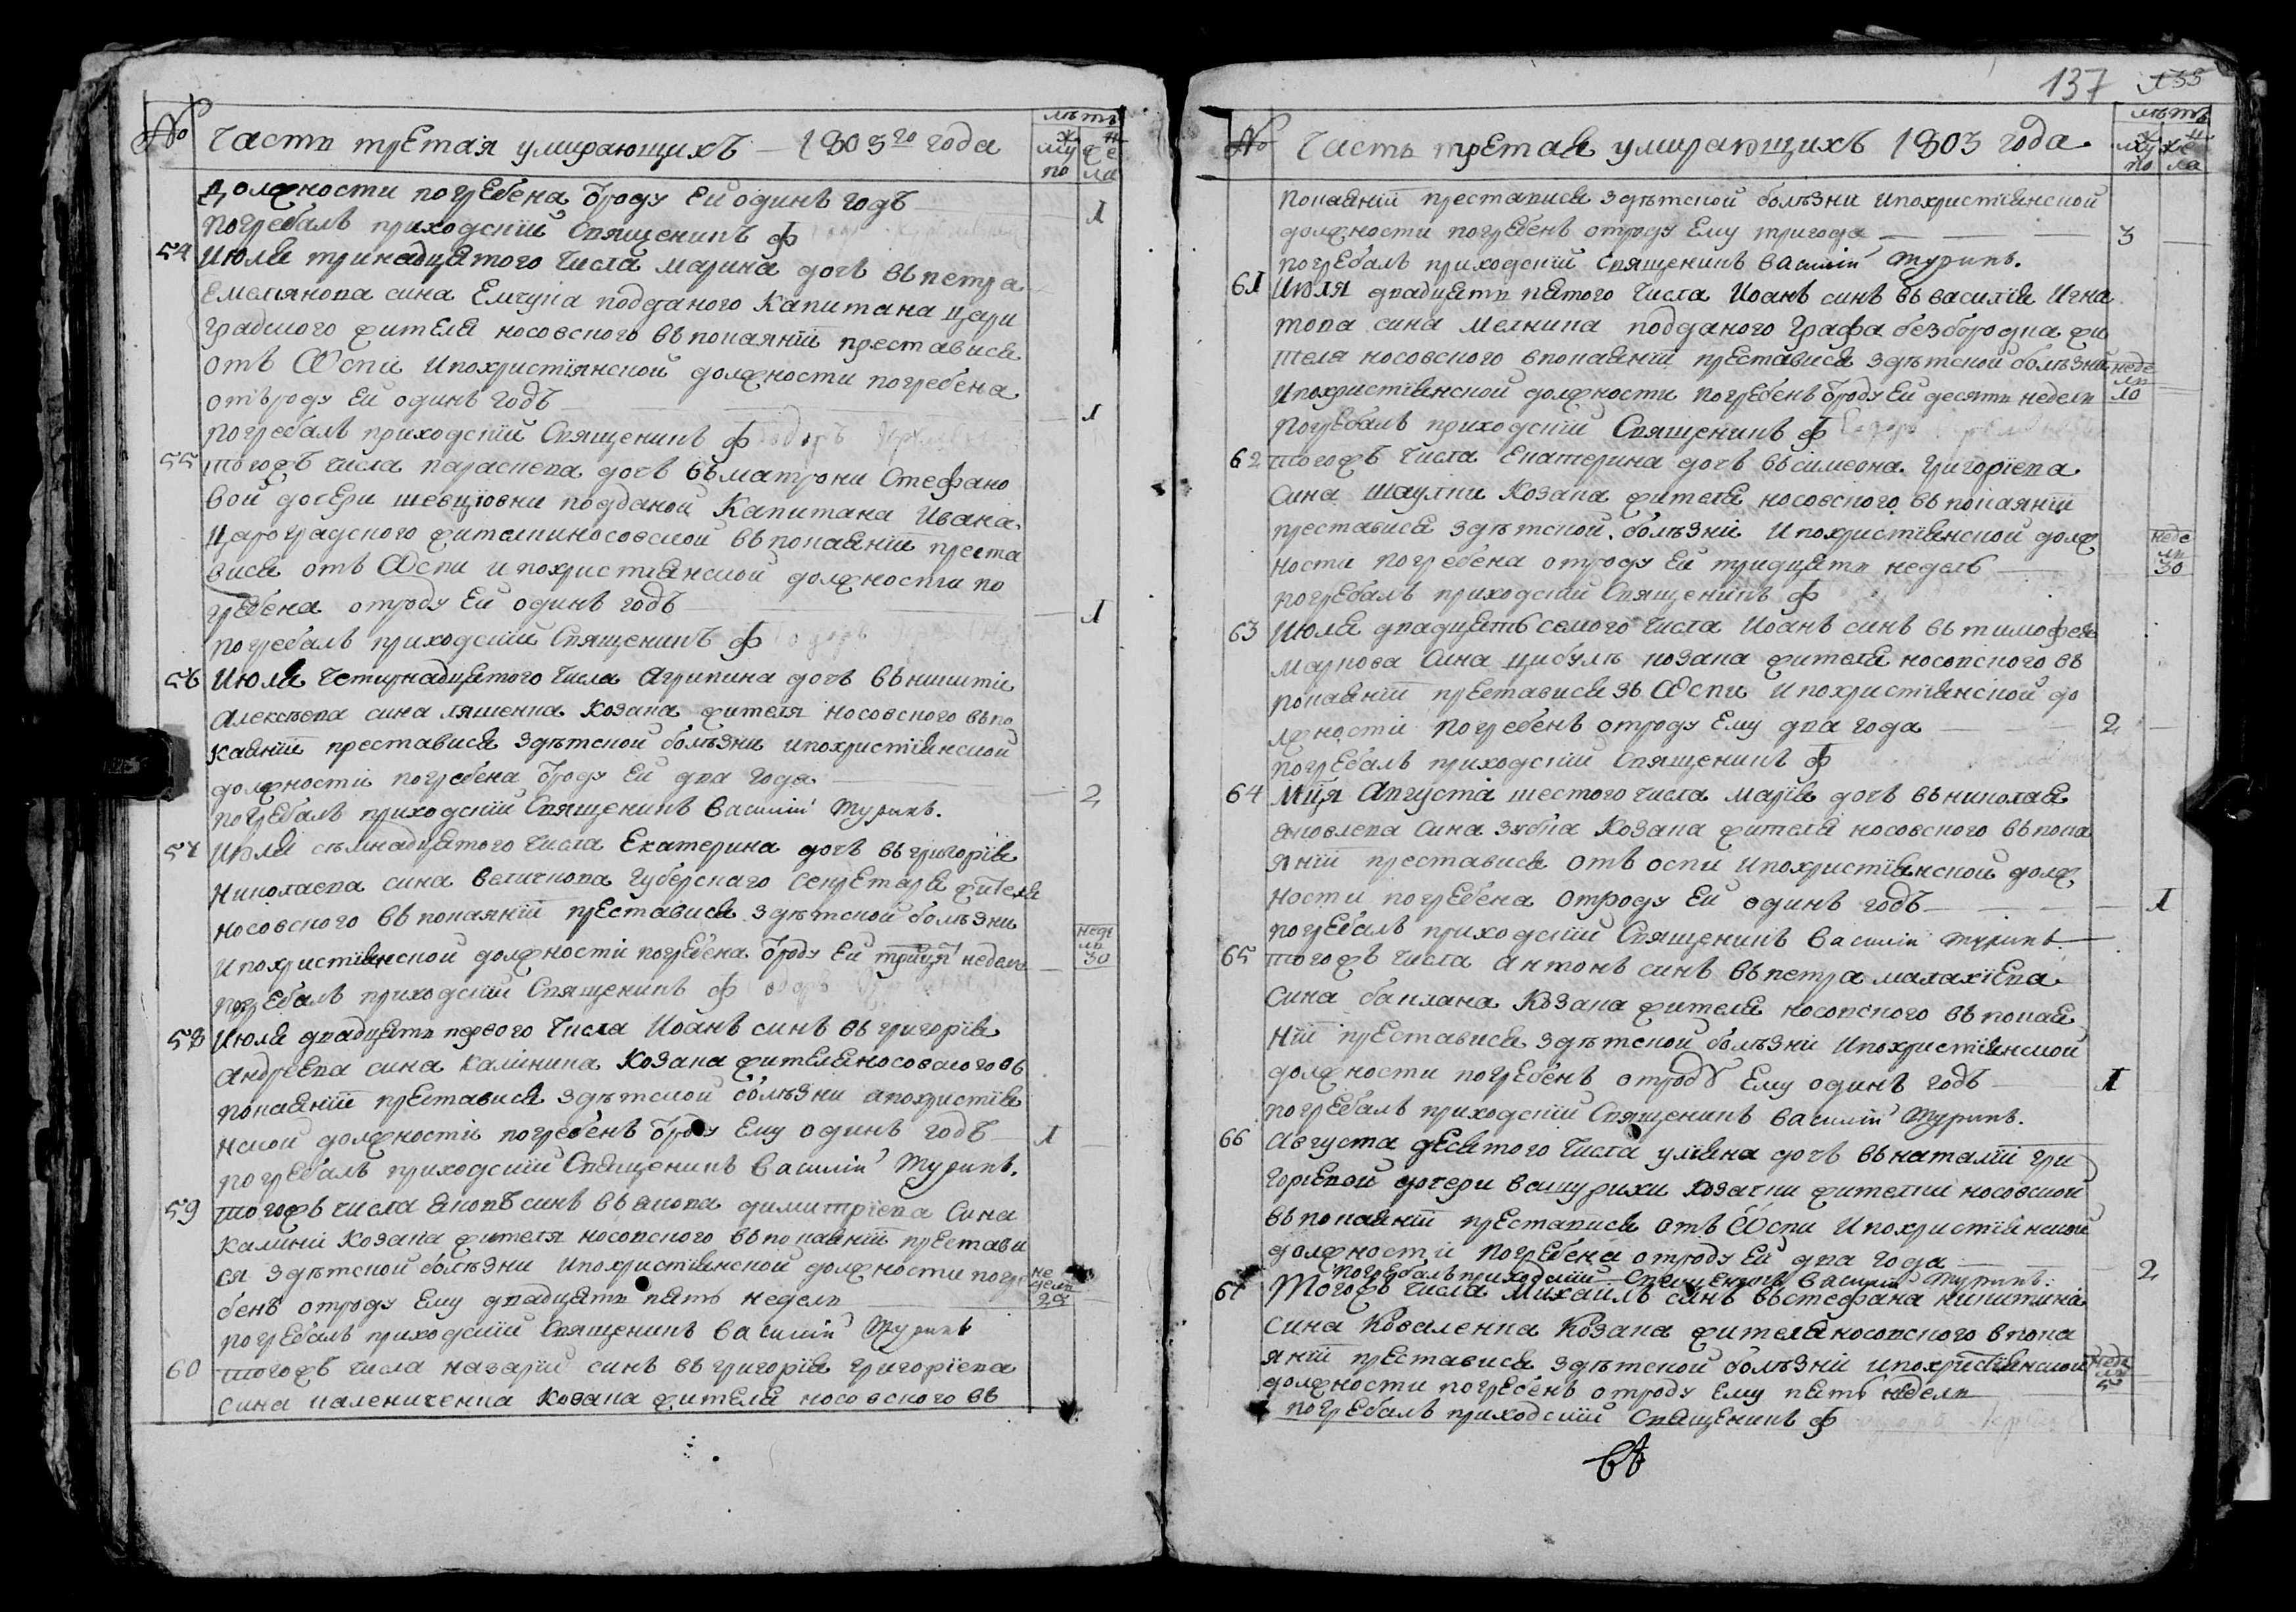 № Часть третая умирающихъ — 1803го года
лѣта
мужеска
женска
должности погребена ѿроду Ей одинъ годъ 1
погребалъ приходскїй Священикъ Ф
54 Июля тринадцятого числа марина дочъ въ петра
Емелянова сина Емчука подданого Капитана цари
градского жителя носовского въ покаянїй преставися
отъ Оспи Ипохристїянской должности погребена
отъроду Ей одинъ годъ 1
погребалъ приходскїй Священикъ Ф
55 тогожъ числа параскева дочъ въ матрони Стефано
вой дочери шевцїовни подданой Капитана Ивана
Цароградского жителки носовской въ покаянїй преста
вися отъ Оспи и похристїянской должности по
гребена отроду Ей одинъ годъ 1
погребалъ приходскїй Священикъ Ф
56 Июля четирнадцятого числа Агрипина дочъ въ никитіи
Алексѣева сина ляшенка Козака жителя носовского въ по
каянїй преставися здѣтской болѣзни ипохристїянской
должности погребена ѿроду Ей два года 2
погребалъ приходскїй Священикъ Василій Турикъ.
57 Июля сѣмнадцятого числа Екатерина дочъ въ григорїя
Николаева сина величкова губерскаго Секретаря жителя
носовского въ покаянїй преставися здѣтской болѣзни
Ипохристїянской должности погребена ѿроду Ей трицят недель недели 30
погребалъ приходскїй Священикъ Ф
58 Июля двадцять первого числа Иоанъ синъ въ григорїя
Андрѣева сина Калинина Козака жителя носовского въ
покаянїй преставися здѣтской болѣзни ипохристїя
нской должности погребенъ ѿроду Ему одинъ годъ 1
погребалъ приходскїй Священикъ Василій Турикъ.
59 тогожъ числа яковъ синъ въ якова димитрїева Сина
Калини Козака жителя носовского въ покаянїй престави
ся здѣтской болѣзни ипохристїянской должности погре
бенъ отроду Ему двадцять пять недели недели 25
погребалъ приходскїй Священикъ Василій Турикъ
60 тогожъ числа назарїй синъ въ григорїя григорїева
сина палениченка Козака жителя носовского въ
137 133
№ Часть третая умирающихъ 1803 года
лѣта
мужеска
женска
покаянїй преставися здѣтской болѣзни ипохристїянской
должности погребенъ отроду Ему тригода 3
погребалъ приходскїй Священикъ Василій Турикъ.
61 Июля двадцять пятого числа Иоанъ синъ въ василїя Игна
това сина Мелника подданого Графа безбородка жи
теля носовского впокаянїй преставися здѣтской болѣзни
Ипохристїянской должности погребенъ ѿроду Ей десять недели недели 10
погребалъ приходскїй Священикъ Ф
62 тогожъ числа Екатерина дочъ въ симеона григорїева
Сина шаулки Козака жителя носовского въ покаянїй
преставися здѣтской болѣзни Ипохристїянской долж
ности погребена отроду Ей тридцять недель недели 30
погребалъ приходскїй Священикъ Ф
63 Июля двадцять семого числа Иоанъ синъ въ тимофея
маркова Сина цибулѣ козака жителя носовского въ
покаянїй преставися зъ Оспи Ипохристїянской до
лжности погребенъ отроду Ему два года 2
погребалъ приходскїй Священикъ Ф
64 Мця Августа шестого числа марїя дочъ въ николая
яковлева Сина зубка Козака жителя носовского въ пока
янїй преставися отъ оспи Ипохристїянской долж
ности погребена отроду Ей одинъ годъ 1
погребалъ приходскїй Священикъ Василій Турикъ
65 тогожъ числа антонъ синъ въ петра малахїева
Сина баклана Козака жителя носовского въ покая
нїй преставися здѣтской болѣзни Ипохристїянской
должности погребенъ отроду Ему одинъ годъ 1
погребалъ приходскїй Священикъ Василій Турикъ.
66 Августа десятого числа улїяна дочъ въ наталїй гри
горіевой дочери вашурихи Козачки жителки носовской
въ покаянїй преставися отъ Оспи Ипохристїянской
должности погребена отроду Ей два года 2
погребалъ приходскїй Священикъ Василій Турикъ.
67 Тогожъ числа Михаилъ синъ въ стефана никитина
сина Коваленка Козака жителя носовского впока
янїй преставися здѣтской болѣзни ипохристїянской
должности погребенъ отроду Ему пять недели недели 5
погребалъ приходскїй Священикъ Ф